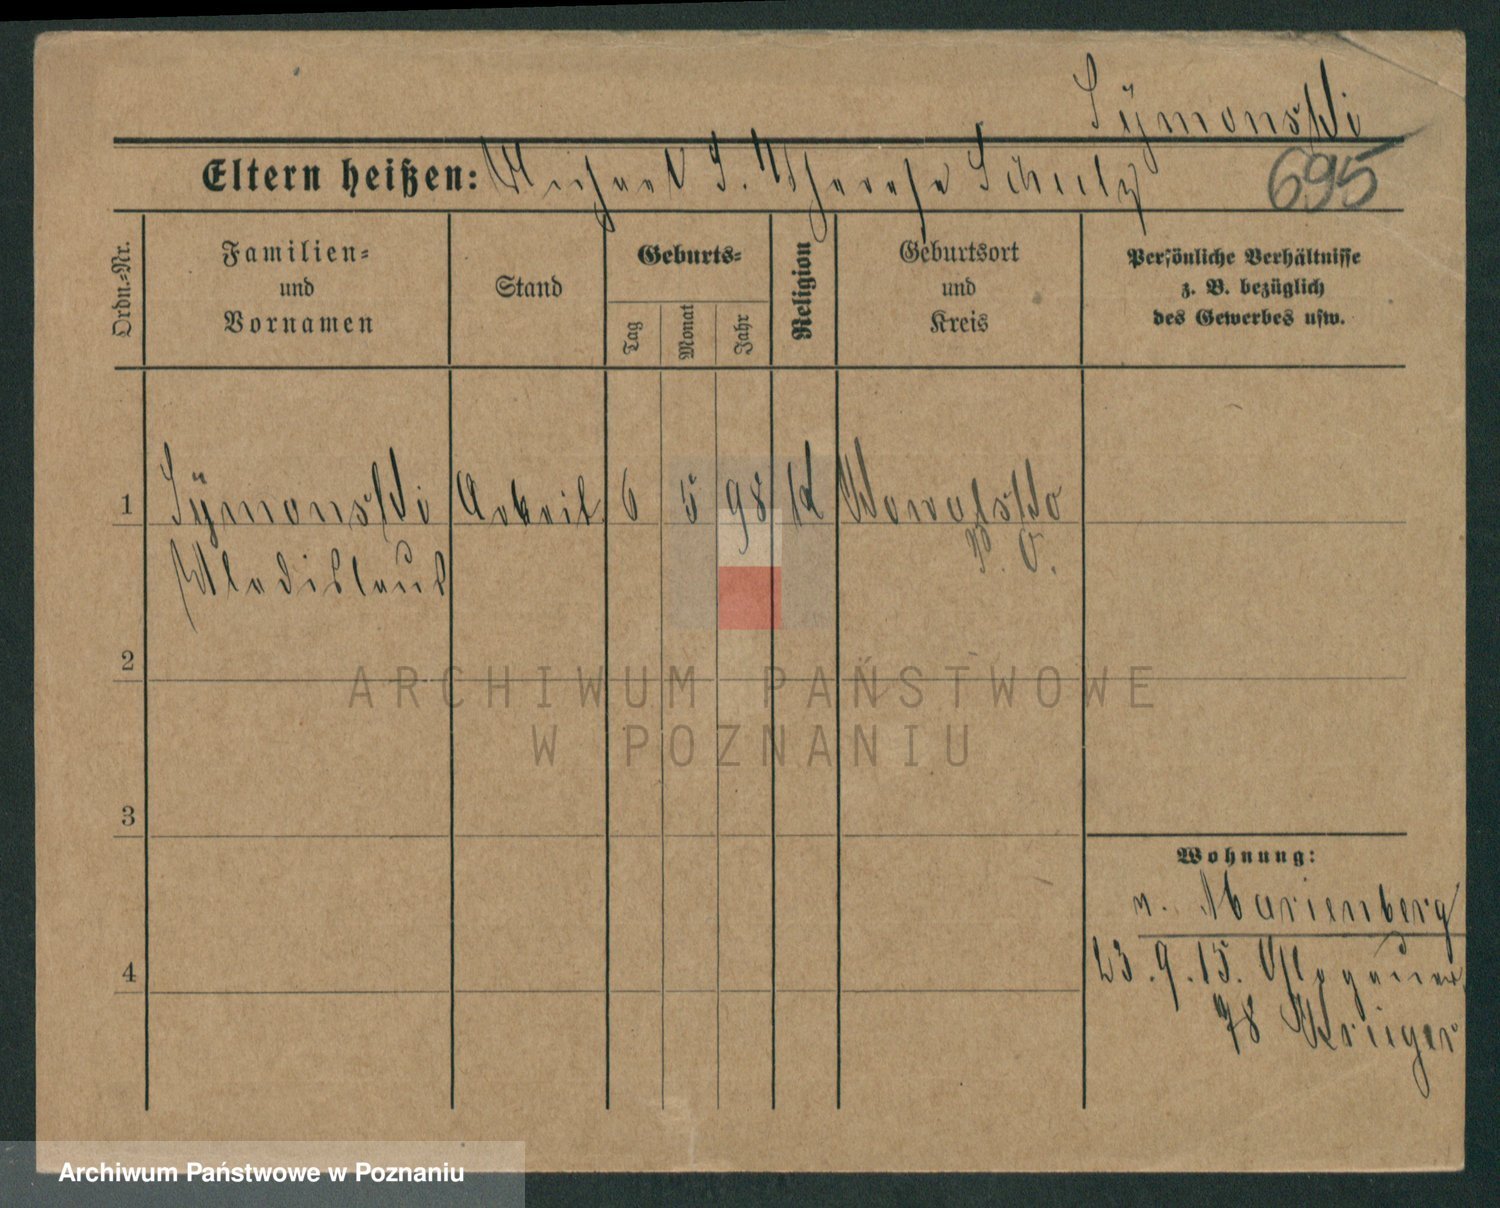 Symonski
Eltern heißen: Michael S. Theresa Schulz
695
Ordn.-Nr.
Familien-
und
Vornamen
Stand
Geburts-
Tag
Monat
Jahr
Religion
Geburtsort
und
Kreis
Persönliche Verhältnisse
z. B. bezüglich
des Gewerbes usw.
1 Symonski Arbeit. 6 5 98 K Kowalsko
P. O.
Wladislaus
2
ARCHIWUM PAŃSTWOWE
W POZNANIU
3
Wohnung:
v. Marienberg
4
23.9.15. Glogauer
78 Krüger
Archiwum Państwowe w Poznaniu